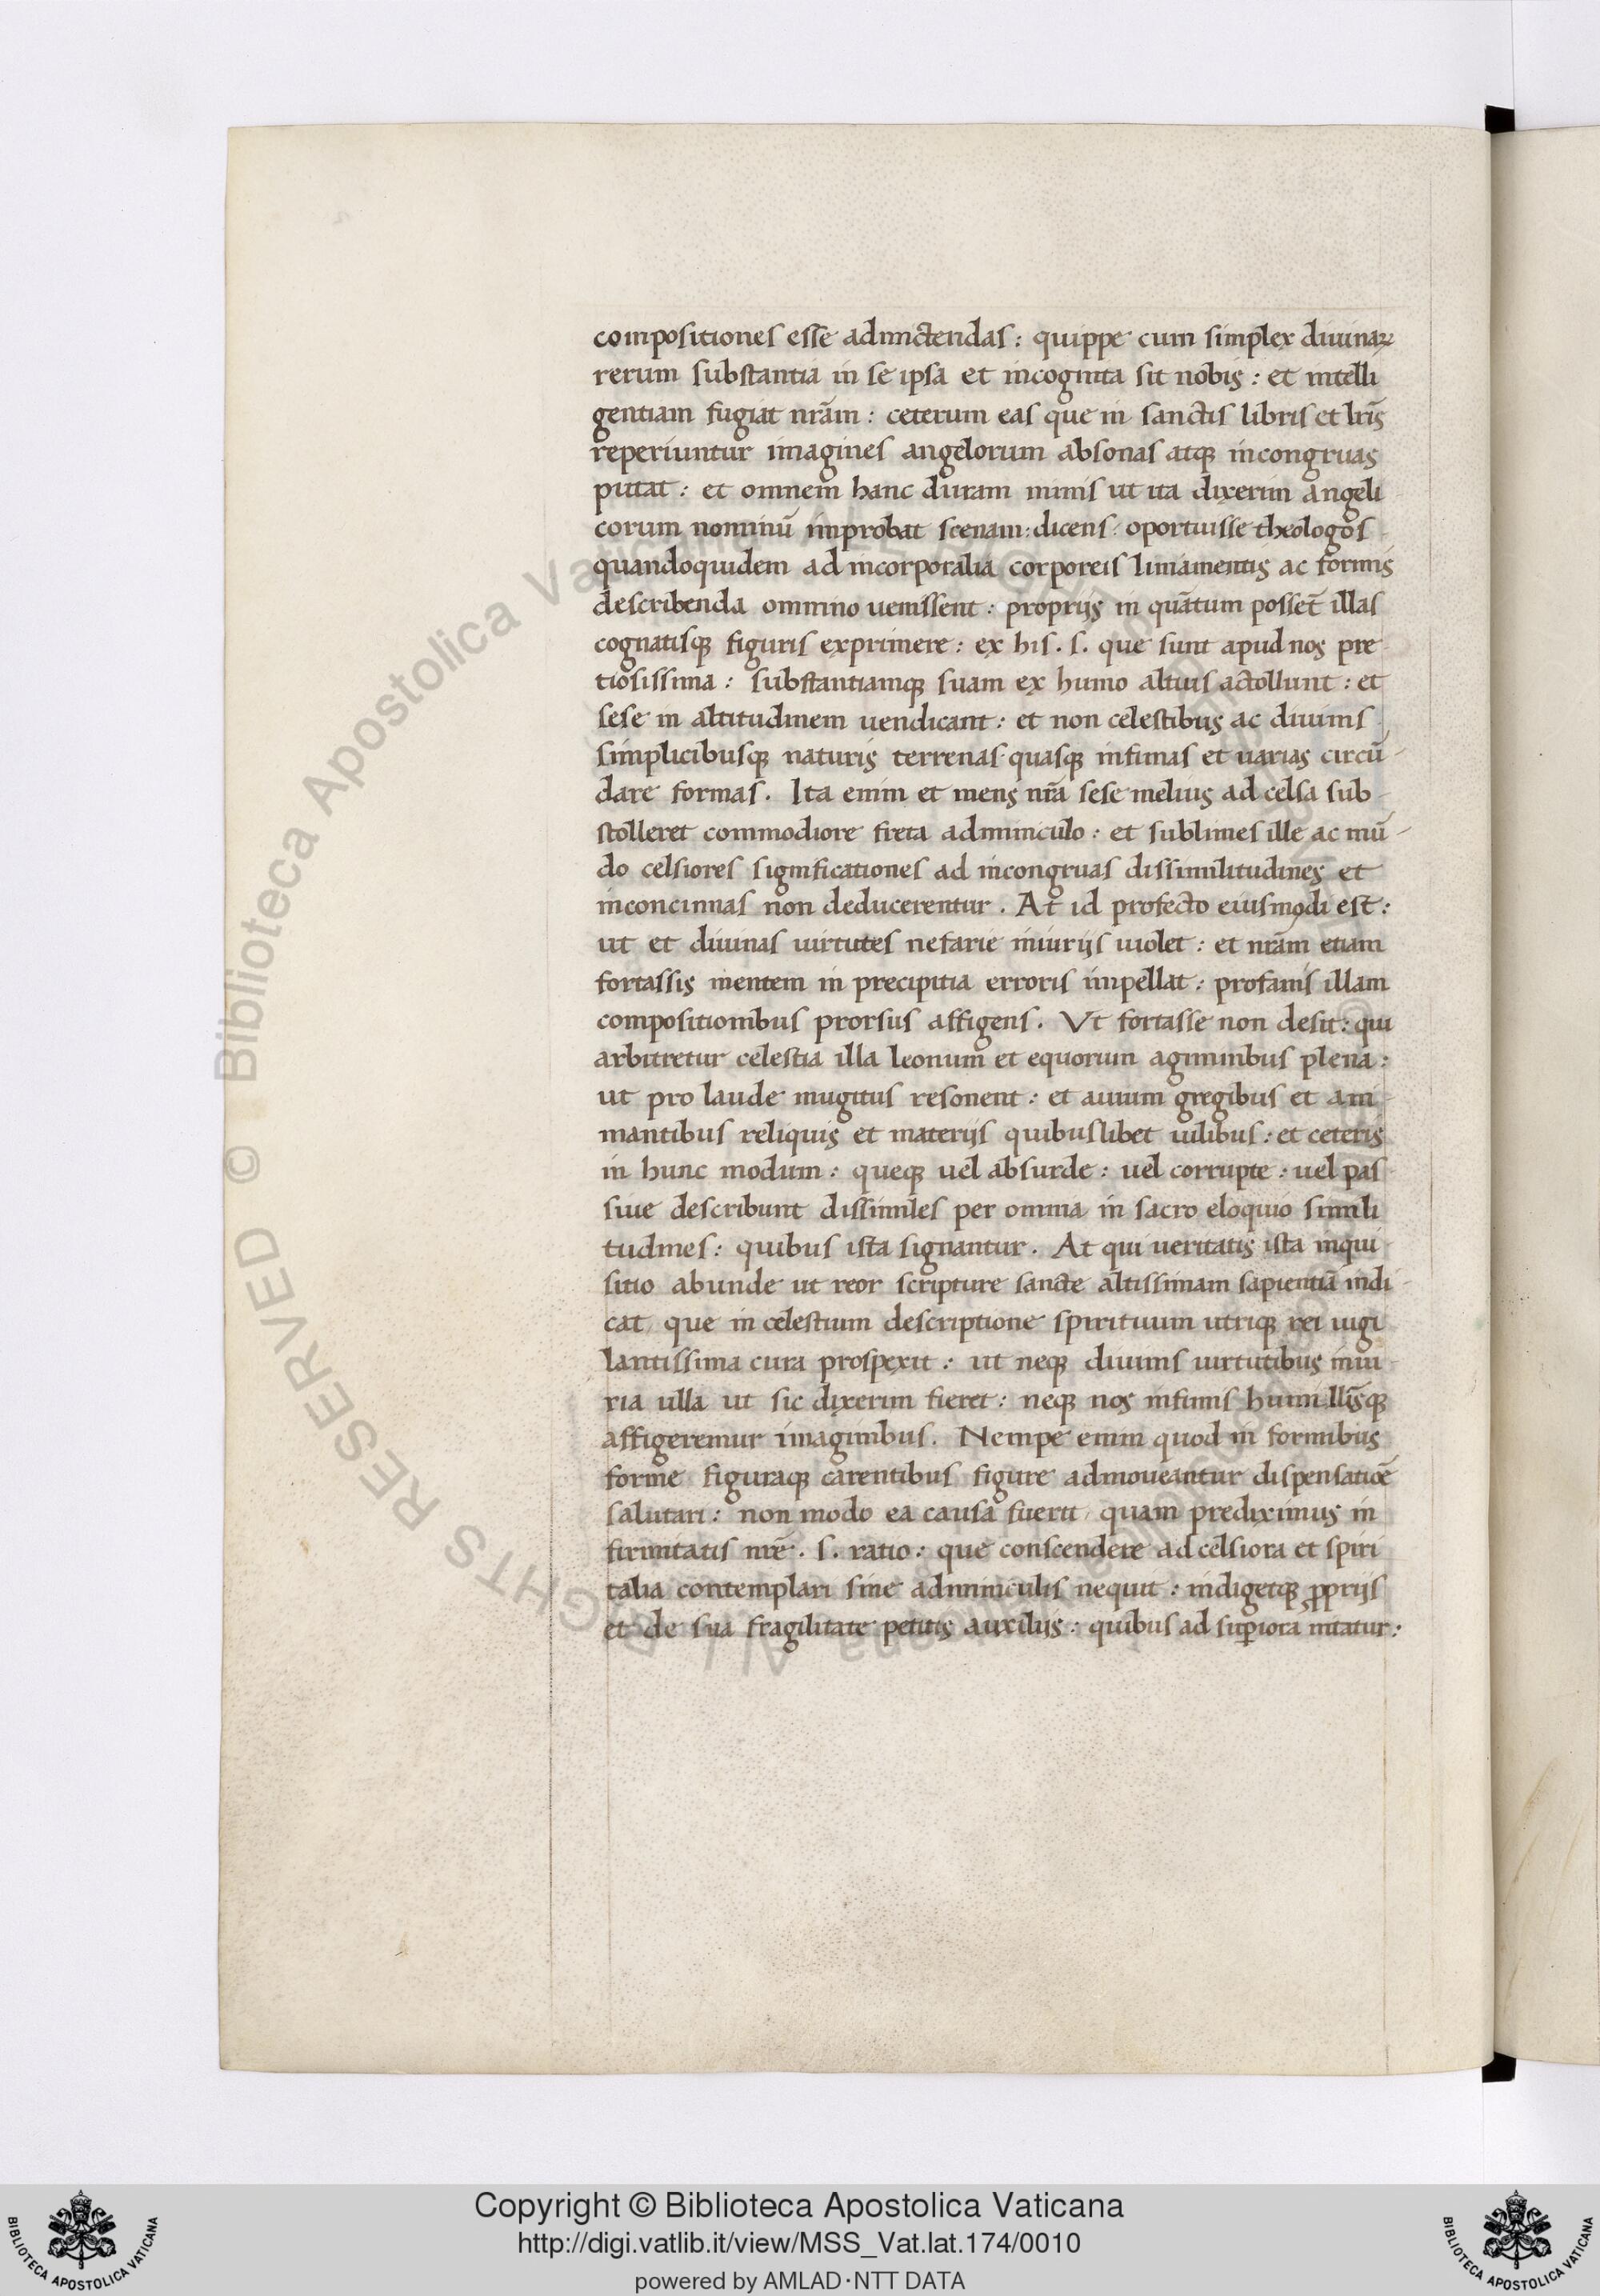 compositiones esse admictendas : quippe cum simplex diuinaꝝ
rerum substantia in se ipsa et incognita sit nobis : et intelli
gentiam fugiat nr̃am : ceterum eas que in sanctis libris et lr̃is
reperiuntur imagines angelorum absonas atqꝫ incongruas
putat : et omnem hanc duram nimis ut ita dixerim angeli
corum nominũ improbat scenam : dicens . oportuisse theologos
quandoquidem ad incorporalia corporeis liniamentis ac formis
describenda omnino uenissent : proprijs in quãtum possẽt illas
cognatisqꝫ figuris exprimere : ex his . s . que sunt apud nos pre
tiosissima : substantiamqꝫ suam ex humo altius actollunt : et
sese in altitudinem uendicant : et non celestibus ac diuinis
simplicibusqꝫ naturis terrenas quasqꝫ infimas et uarias circũ
dare formas . Ita enim et mens nr̃a sese melius ad celsa sub
stolleret commodiore freta adminiculo : et sublimes ille ac mũ
do celsiores significationes ad incongruas dissimilitudines et
inconcinnas non deducerentur . At id profecto eiusmodi est :
ut et diuinas uirtutes nefarie iniurijs uiolet : et nr̃am etiam
fortassis mentem in precipitia erroris impellat : profanis illam
compositionibus prorsus affigens . Vt fortasse non desit : qui
arbitretur celestia illa leonum et equorum agminibus plena :
ut pro laude mugitus resonent : et auium gregibus et ani
mantibus reliquis et materijs quibuslibet uilibus : et ceteris
in hunc modum : queqꝫ uel absurde : uel corrupte : uel pas
siue describunt dissimiles per omnia in sacro eloquio simili
tudines : quibus ista signantur . At qui ueritatis ista inqui
sitio abunde ut reor scripture sancte altissimam sapientiã indi
cat , que in celestium descriptione spirituum utriqꝫ rei uigi
lantissima cura prospexit : ut neqꝫ diuinis uirtutibus iniu
ria ulla ut sic dixerim fieret : neqꝫ nos infimis humillĩsqꝫ
affigeremur imaginibus . Nempe enim quod in formibus
forme figuraqꝫ carentibus figure admoueantur dispensatiõe
salutari : non modo ea causa fuerit , quam prediximus in
firmitatis nrẽ . s . ratio : que conscendere ad celsiora et spiri
talia contemplari sine adminiculis nequit : indigetqꝫ ꝓprijs
et de sua fragilitate petitis auxilijs : quibus ad suꝑiora nitatur :
Copyright © Biblioteca Apostolica Vaticana
http://digi.vatlib.it/view/MSS_Vat.lat.174/0010
powered by AMLAD·NTT DATA